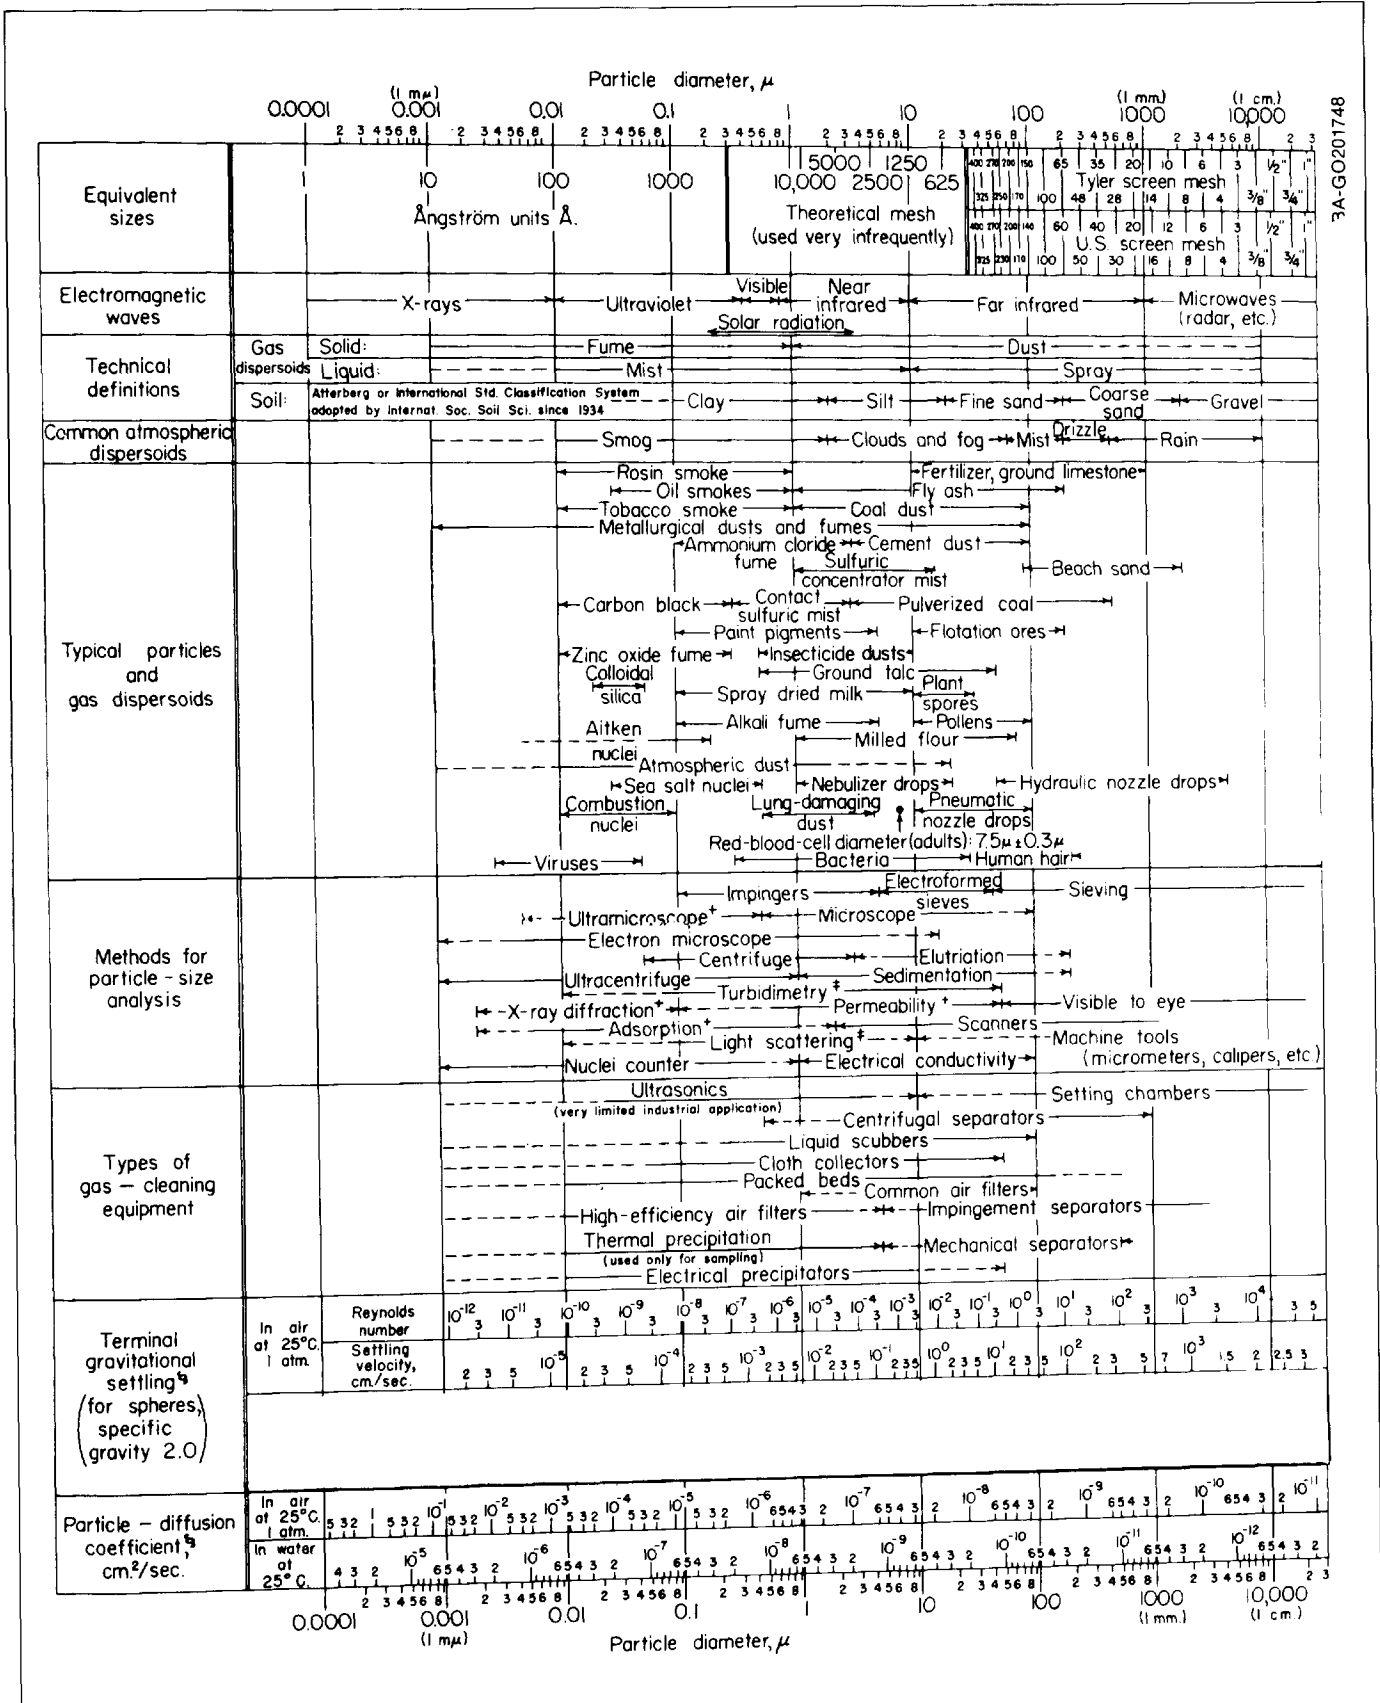 Particle diameter, μ
(1 mμ) (1 mm.) (1 cm.)
0.0001 0.001 0.01 0.1 1 10 100 1000 10,000
2 3 4 5 6 8 2 3 4 5 6 8 2 3 4 5 6 8 2 3 4 5 6 8 2 3 4 5 6 8 2 3 4 5 6 8 2 3 4 5 6 8 2 3 4 5 6 8 2 3
BA-GO201748
Equivalent
sizes
1 10 100 1000
Ångström units Å.
5000 1250
10,000 2500 625
Theoretical mesh
(used very infrequently)
400 270 200 150 65 35 20 10 6 3 1/2" 1"
Tyler screen mesh
325 250 170 100 48 28 14 8 4 3/8" 3/4"
400 270 200 140 60 40 20 12 6 3 1/2" 1"
U.S. screen mesh
325 230 170 100 50 30 16 8 4 3/8" 3/4"
Electromagnetic
waves
X-rays Ultraviolet Visible Near
infrared Far infrared Microwaves
(radar, etc.)
Solar radiation
Technical
definitions
Gas
dispersoids
Solid: Fume Dust
Liquid: Mist Spray
Soil: Atterberg or International Std. Classification System
adopted by Internat. Soc. Soil Sci. since 1934
Clay Silt Fine sand Coarse
sand Gravel
Common atmospheric
dispersoids
Smog Clouds and fog Mist Drizzle Rain
Typical particles
and
gas dispersoids
Rosin smoke Fertilizer, ground limestone
Oil smokes Fly ash
Tobacco smoke Coal dust
Metallurgical dusts and fumes
Ammonium cloride
fume
Cement dust
Sulfuric
concentrator mist
Beach sand
Carbon black Contact
sulfuric mist
Pulverized coal
Paint pigments Flotation ores
Zinc oxide fume Insecticide dusts
Colloidal
silica
Ground talc
Spray dried milk Plant
spores
Alkali fume Pollens
Aitken
nuclei
Milled flour
Atmospheric dust
Sea salt nuclei Nebulizer drops Hydraulic nozzle drops
Combustion
nuclei
Lung-damaging
dust
Pneumatic
nozzle drops
Red-blood-cell diameter (adults): 7.5μ ± 0.3μ
Viruses Bacteria Human hair
Methods for
particle - size
analysis
Impingers Electroformed
sieves
Sieving
Ultramicroscope+ Microscope
Electron microscope
Centrifuge Elutriation
Ultracentrifuge Sedimentation
Turbidimetry‡
X-ray diffraction+ Permeability+ Visible to eye
Adsorption+ Scanners
Light scattering‡ Machine tools
(micrometers, calipers, etc.)
Nuclei counter Electrical conductivity
Types of
gas - cleaning
equipment
Ultrasonics
(very limited industrial application)
Setting chambers
Centrifugal separators
Liquid scubbers
Cloth collectors
Packed beds
Common air filters
High-efficiency air filters Impingement separators
Thermal precipitation
(used only for sampling)
Mechanical separators
Electrical precipitators
Terminal
gravitational
settling§
(for spheres,
specific
gravity 2.0)
In air
at 25°C.
1 atm.
Reynolds
number
10-12 3 10-11 3 10-10 3 10-9 3 10-8 3 10-7 3 10-6 3 10-5 3 10-4 3 10-3 3 10-2 3 10-1 3 10⁰ 3 10¹ 3 10² 3 10³ 3 10⁴ 3 5
Settling
velocity,
cm./sec.
2 3 5 10-5 2 3 5 10-4 2 3 5 10-3 2 3 5 10-2 2 3 5 10-1 2 3 5 10⁰ 2 3 5 10¹ 2 3 5 10² 2 3 5 7 10³ 1.5 2 2.5 3
Particle - diffusion
coefficient,§
cm.²/sec.
In air
at 25°C.
1 atm.
5 3 2 1 5 3 2 10-1 5 3 2 10-2 5 3 2 10-3 5 3 2 10-4 5 3 2 10-5 5 3 2 10-6 6 5 4 3 2 10-7 6 5 4 3 2 10-8 6 5 4 3 2 10-9 6 5 4 3 2 10-10 6 5 4 3 2 10-11
In water
at
25°C.
4 3 2 10-5 6 5 4 3 2 10-6 6 5 4 3 2 10-7 6 5 4 3 2 10-8 6 5 4 3 2 10-9 6 5 4 3 2 10-10 6 5 4 3 2 10-11 6 5 4 3 2 10-12 6 5 4 3 2
2 3 4 5 6 8 2 3 4 5 6 8 2 3 4 5 6 8 2 3 4 5 6 8 2 3 4 5 6 8 2 3 4 5 6 8 2 3 4 5 6 8 2 3 4 5 6 8 2 3
0.0001 0.001 0.01 0.1 1 10 100 1000 10,000
(1 mμ) (1 mm.) (1 cm.)
Particle diameter, μ